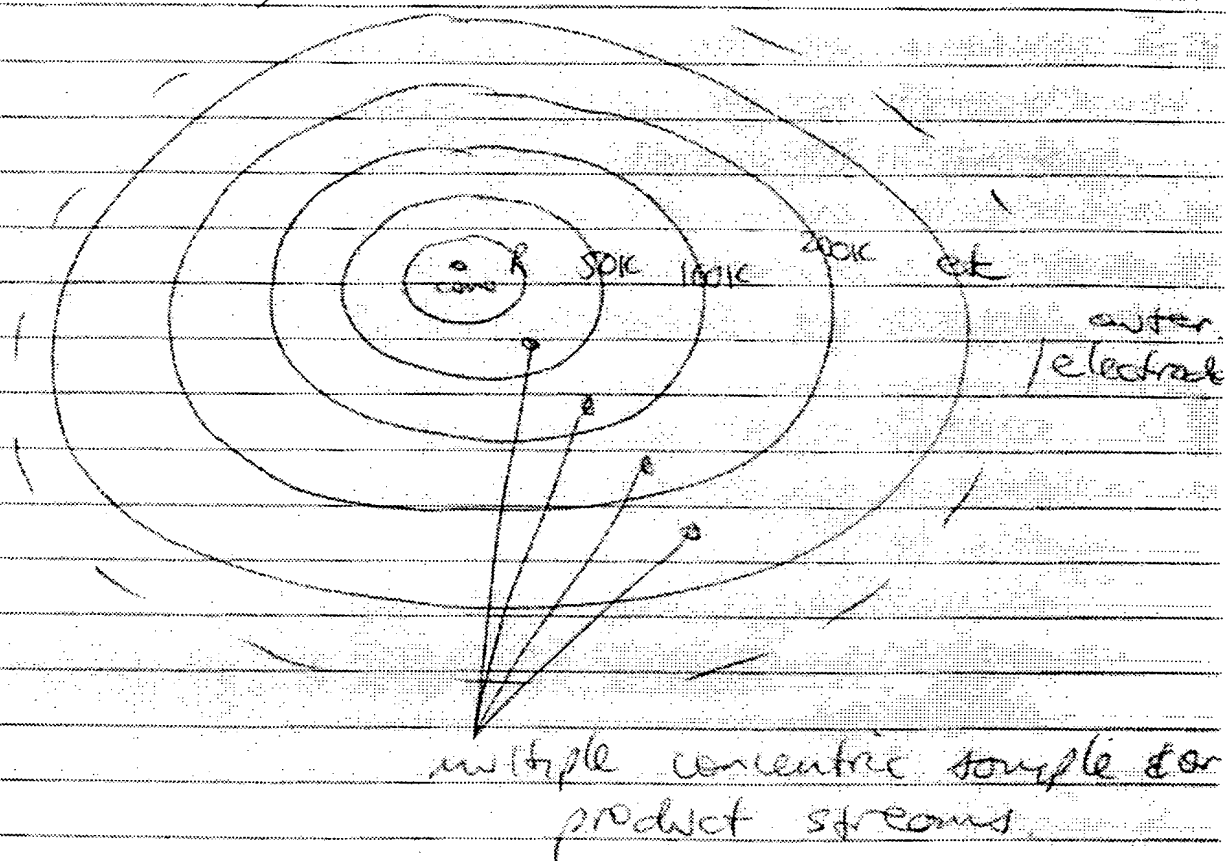 R 50K 100K 200K etc
core
outer
electrode
multiple concentric sample &or
product streams.